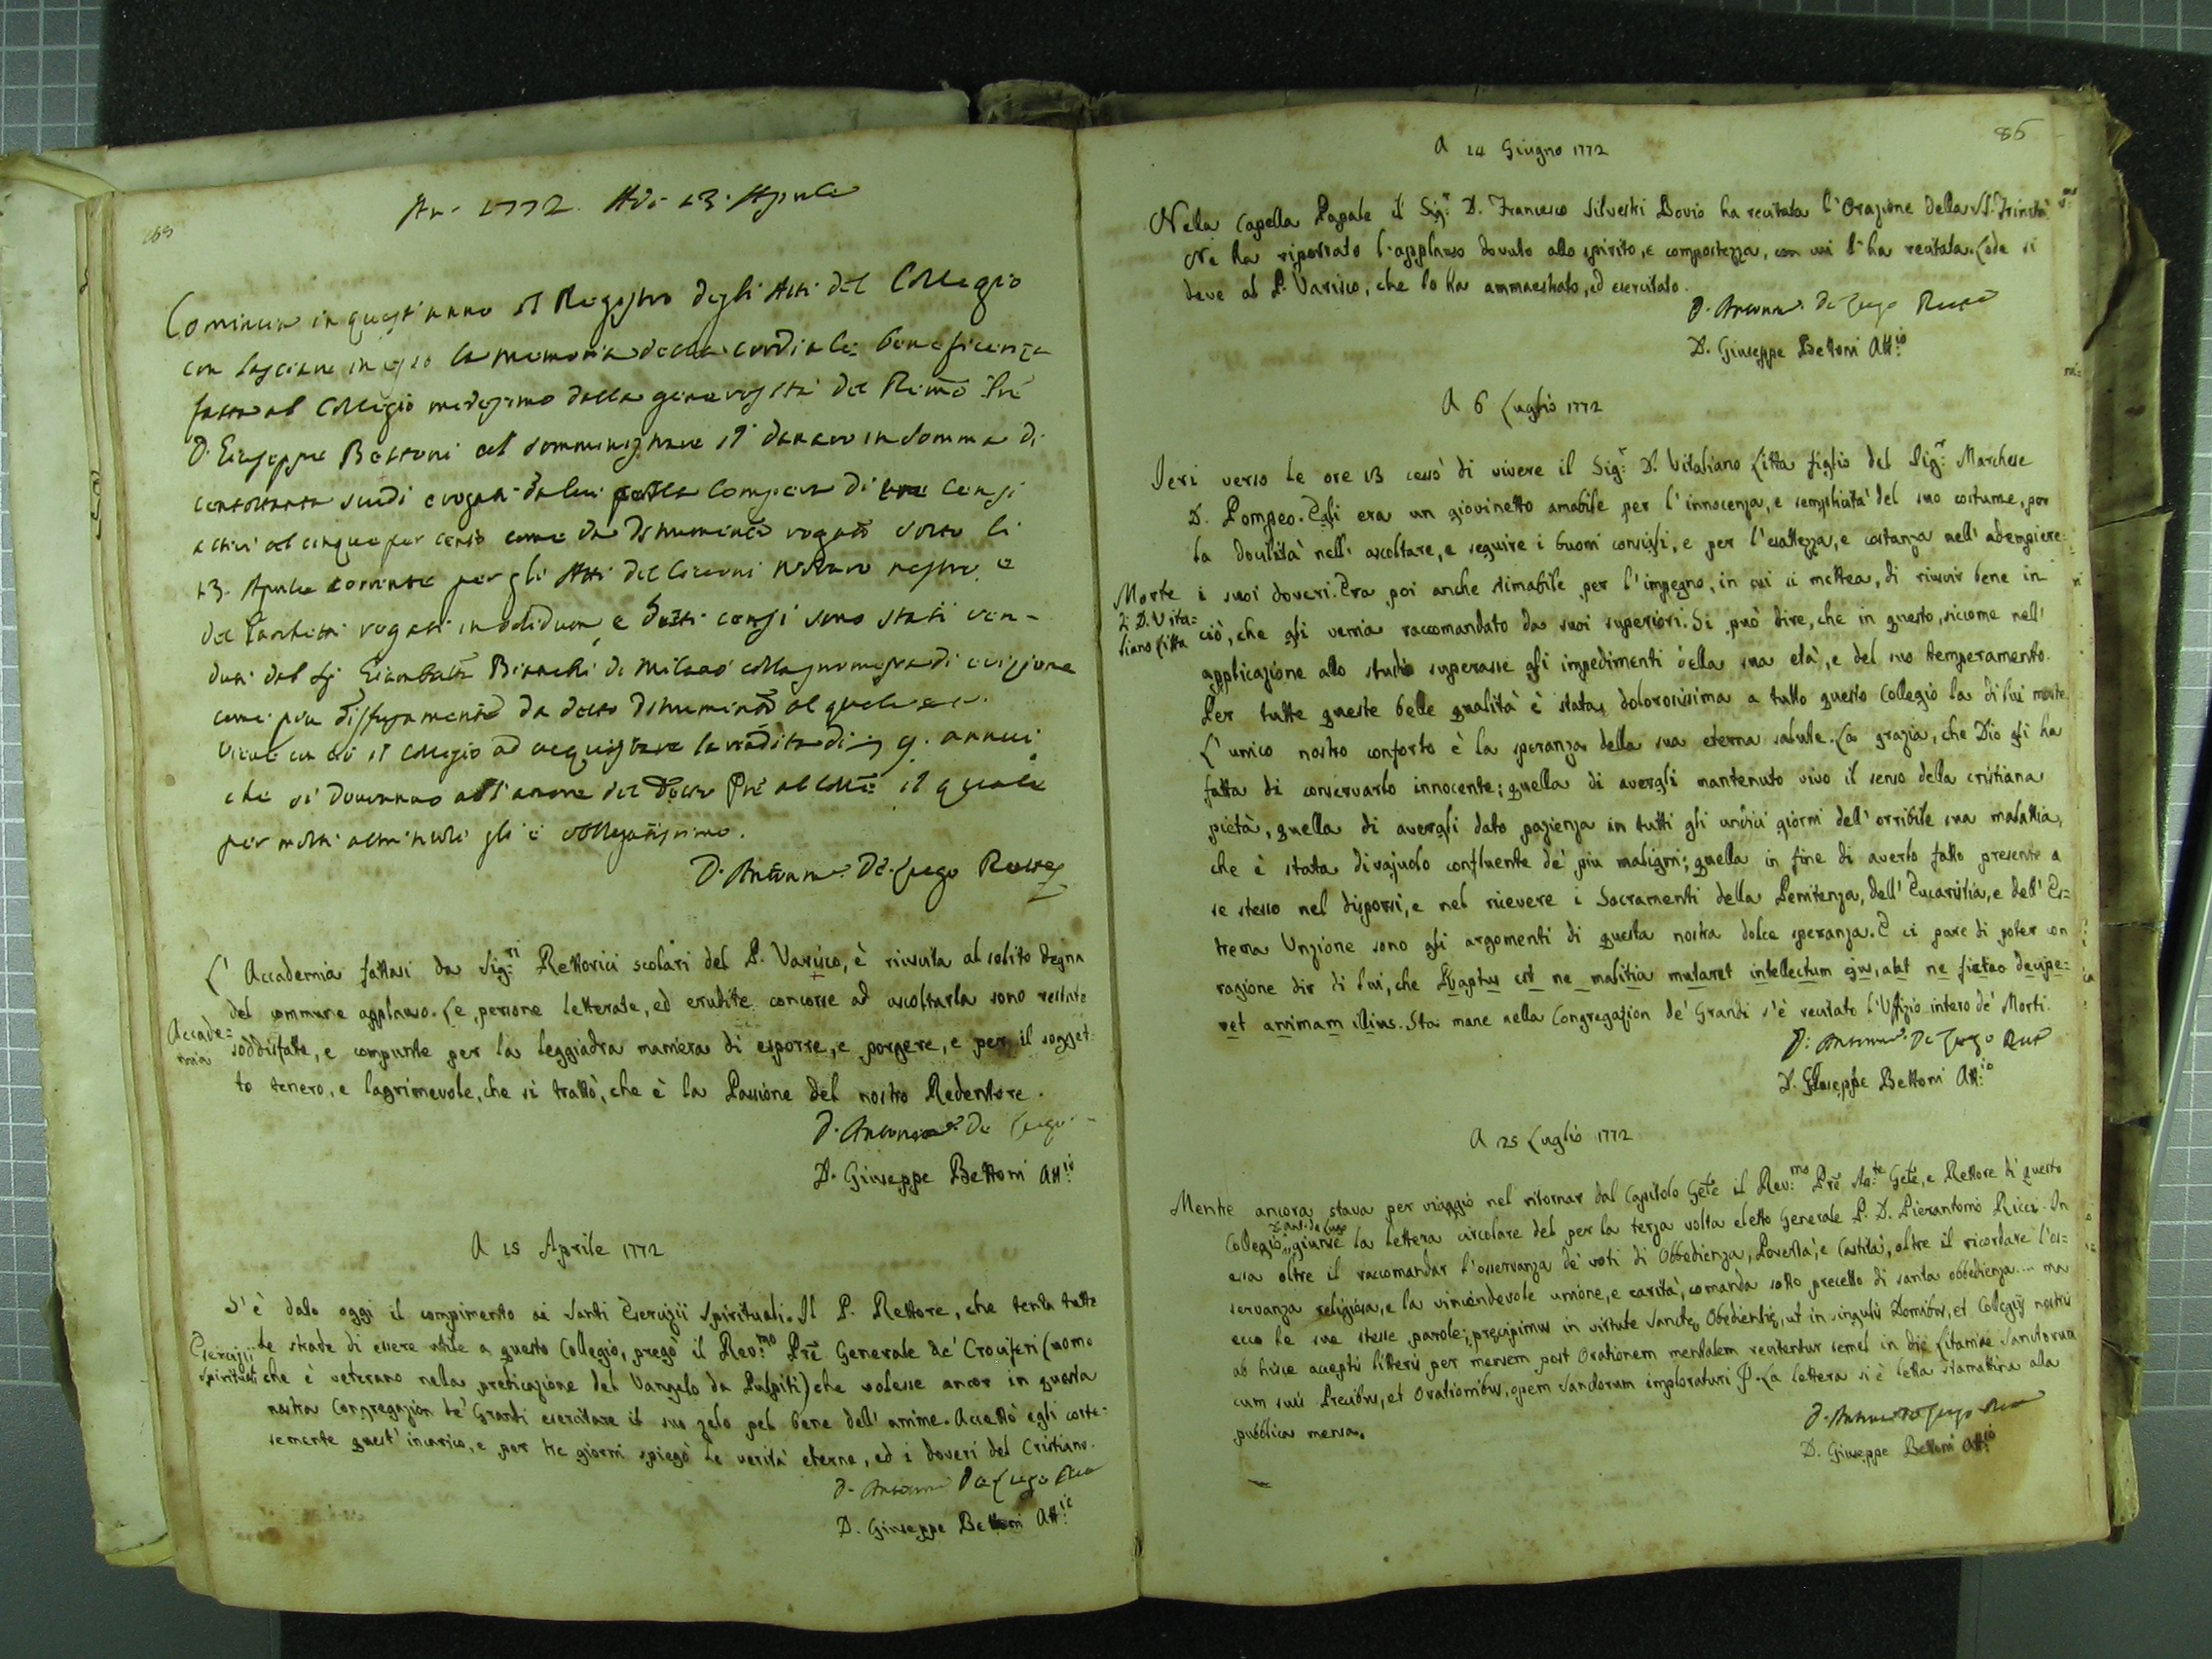 168
An. 1772. Adi 13. Aprile
Comincia in quest'anno il Registro degli Atti del Collegio
con lasciare in esso la memoria della cordiale beneficenza
fatta al Collegio medesimo dalla generosità del Rimo Pre
D. Giuseppe Bettoni col somministrare il danaro in somma di
centottanta scudi erogati da lui nella compera di censi
attivi al cinque per cento come da Istrumento rogato sotto li
13. Aprile corrente per gli Atti del Ciceroni Notaro nostro, e
del rogati in solidum, e detti censi sono stati ven-
duti dal Sig Giambatta Bianchi di Milano colla promessa di evizione
come più diffusamente da detto Istrumento al quale
Viene con ciò il Collegio ad acquistare la rendita di 9. annui
che si dovranno all'amore del detto Pre al Collo il quale
per molti altri titoli gli è obbligatissimo.
D. Anton Ma. De Lugo Rettore
L'Accademia fattasi da Sig.ri Rettorici scolari del P. Varisco, è riuscita al solito degna
del commune applauso. Le persone letterate, ed erudite concorse ad ascoltarla sono restate
Accade=
mia
soddisfatte, e compunte per la leggiadra maniera di esporre, e porgere, e per il sogget-
to tenero, e lagrimevole, che si trattò, che è la Passione del nostro Redentore.
D. Anton Ma. De Lugo
D. Giuseppe Bettoni Att.io
A 15 Aprile 1772
S'è dato oggi il compimento ai Santi Esercizii Spirituali. Il P. Rettore, che tenta tutte
Esercizii
spirituali
le strade di essere utile a questo Collegio, pregò il Rev.mo Pre Generale de' Crociferi (uomo
che è veterano nella predicazione del Vangelo da Pulpiti) che volesse ancor in questa
nostra Congregazion de' Grandi esercitare il suo zelo pel bene dell'anime. Accettò egli corte-
semente quest'incarico, e per tre giorni spiegò le verità eterne, ed i doveri del Cristiano.
D. Anton De Lugo Rett
D. Giuseppe Bettoni Att.io
86
A 14 Giugno 1772
Nela Capella Papale il Sig.r D. Francesco Silvestri Bovio ha recitata l'Orazione della SS. Trinità
Ne ha riportato l'applauso dovuto allo spirito, e compostezza, con cui l'ha recitata. Lode si
deve al P. Varisco, che lo ha ammaestrato, ed esercitato.
D. Anton Ma. De Lugo Rett
D. Giuseppe Bettoni Att.io
A 6 Luglio 1772
Ieri verso le ore 13 cessò di vivere il Sig.r D. Vitaliano Litta figlio del Sig.r Marchese
D. Pompeo. Egli era un giovinetto amabile per l'innocenza, e semplicità del suo costume, per
la docilità nell'ascoltare, e seguire i buoni consigli, e per l'esattezza, e costanza nell'adempiere
Morte
di D. Vita=
liano Litta
i suoi doveri. Era poi anche stimabile per l'impegno, in cui si mettea, di riuscir bene in
ciò, che gli venia raccomandato da suoi superiori. Si può dire, che in questo, siccome nell'
applicazione allo studio superasse gli impedimenti della sua età, e del suo temperamento.
Per tutte queste belle qualità è stata dolorosissima a tutto questo Collegio la di lui morte
L'unico nostro conforto è la speranza della sua eterna salute. La grazia, che Dio gli ha
fatta di conservarlo innocente; quella di avergli mantenuto vivo il senso della cristiana
pietà, quella di avergli dato pazienza in tutti gli undici giorni dell'orribile sua malattia,
che è stata di vajuolo confluente de' piu maligni; quella in fine di averlo fatto presente a
se stesso nel disporsi, e nel ricevere i Sacramenti della Penitenza, dell'Eucaristia, e dell'Es=
trema Unzione sono gli argomenti di questa nostra dolce speranza. E ci pare di poter con
ragione dir di lui, che Raptus est ne malitia mutaret intellectum ejus, aut ne fictio decipe=
ret animam illius. Sta mane nella Congregazion de' Grandi s'è recitato l'Uffizio intero de' Morti.
D. Anton Ma. De Lugo Rett
D. Giuseppe Bettoni Att.io
A 25 Luglio 1772
Mentre ancora stava per viaggio nel ritornar dal Capitolo Gen͞le il Rev.mo Pre Ass.te Gen͞le, e Rettore di questo
D. Ant. de Lugo
Collegio, giunse la lettera circolare del per la terza volta eletto Generale P. D. Pierantonio Ricci. In
essa oltre il raccomandar l'osservanza de' voti di Obbedienza, Povertà, e Castità, oltre il ricordare l'os=
servanza religiosa, e la vincendevole unione, e carità, comanda sotto precetto di santa obbedienza.... ma
ecco le sue stesse parole; præcipimus in virtute Sanctæ Obedientiæ, ut in singulis Domibus, et Collegiis nostris
ab hisce acceptis litteris per mensem post Orationem mentalem recitentur semel in die Litaniae Sanctorum
cum suis Precibus, et Orationibus, opem Sanctorum imploraturi. La lettera si è letta stamattina alla
pubblica mensa.
D. Anton De Lugo Rett
D. Giuseppe Bettoni Att.io